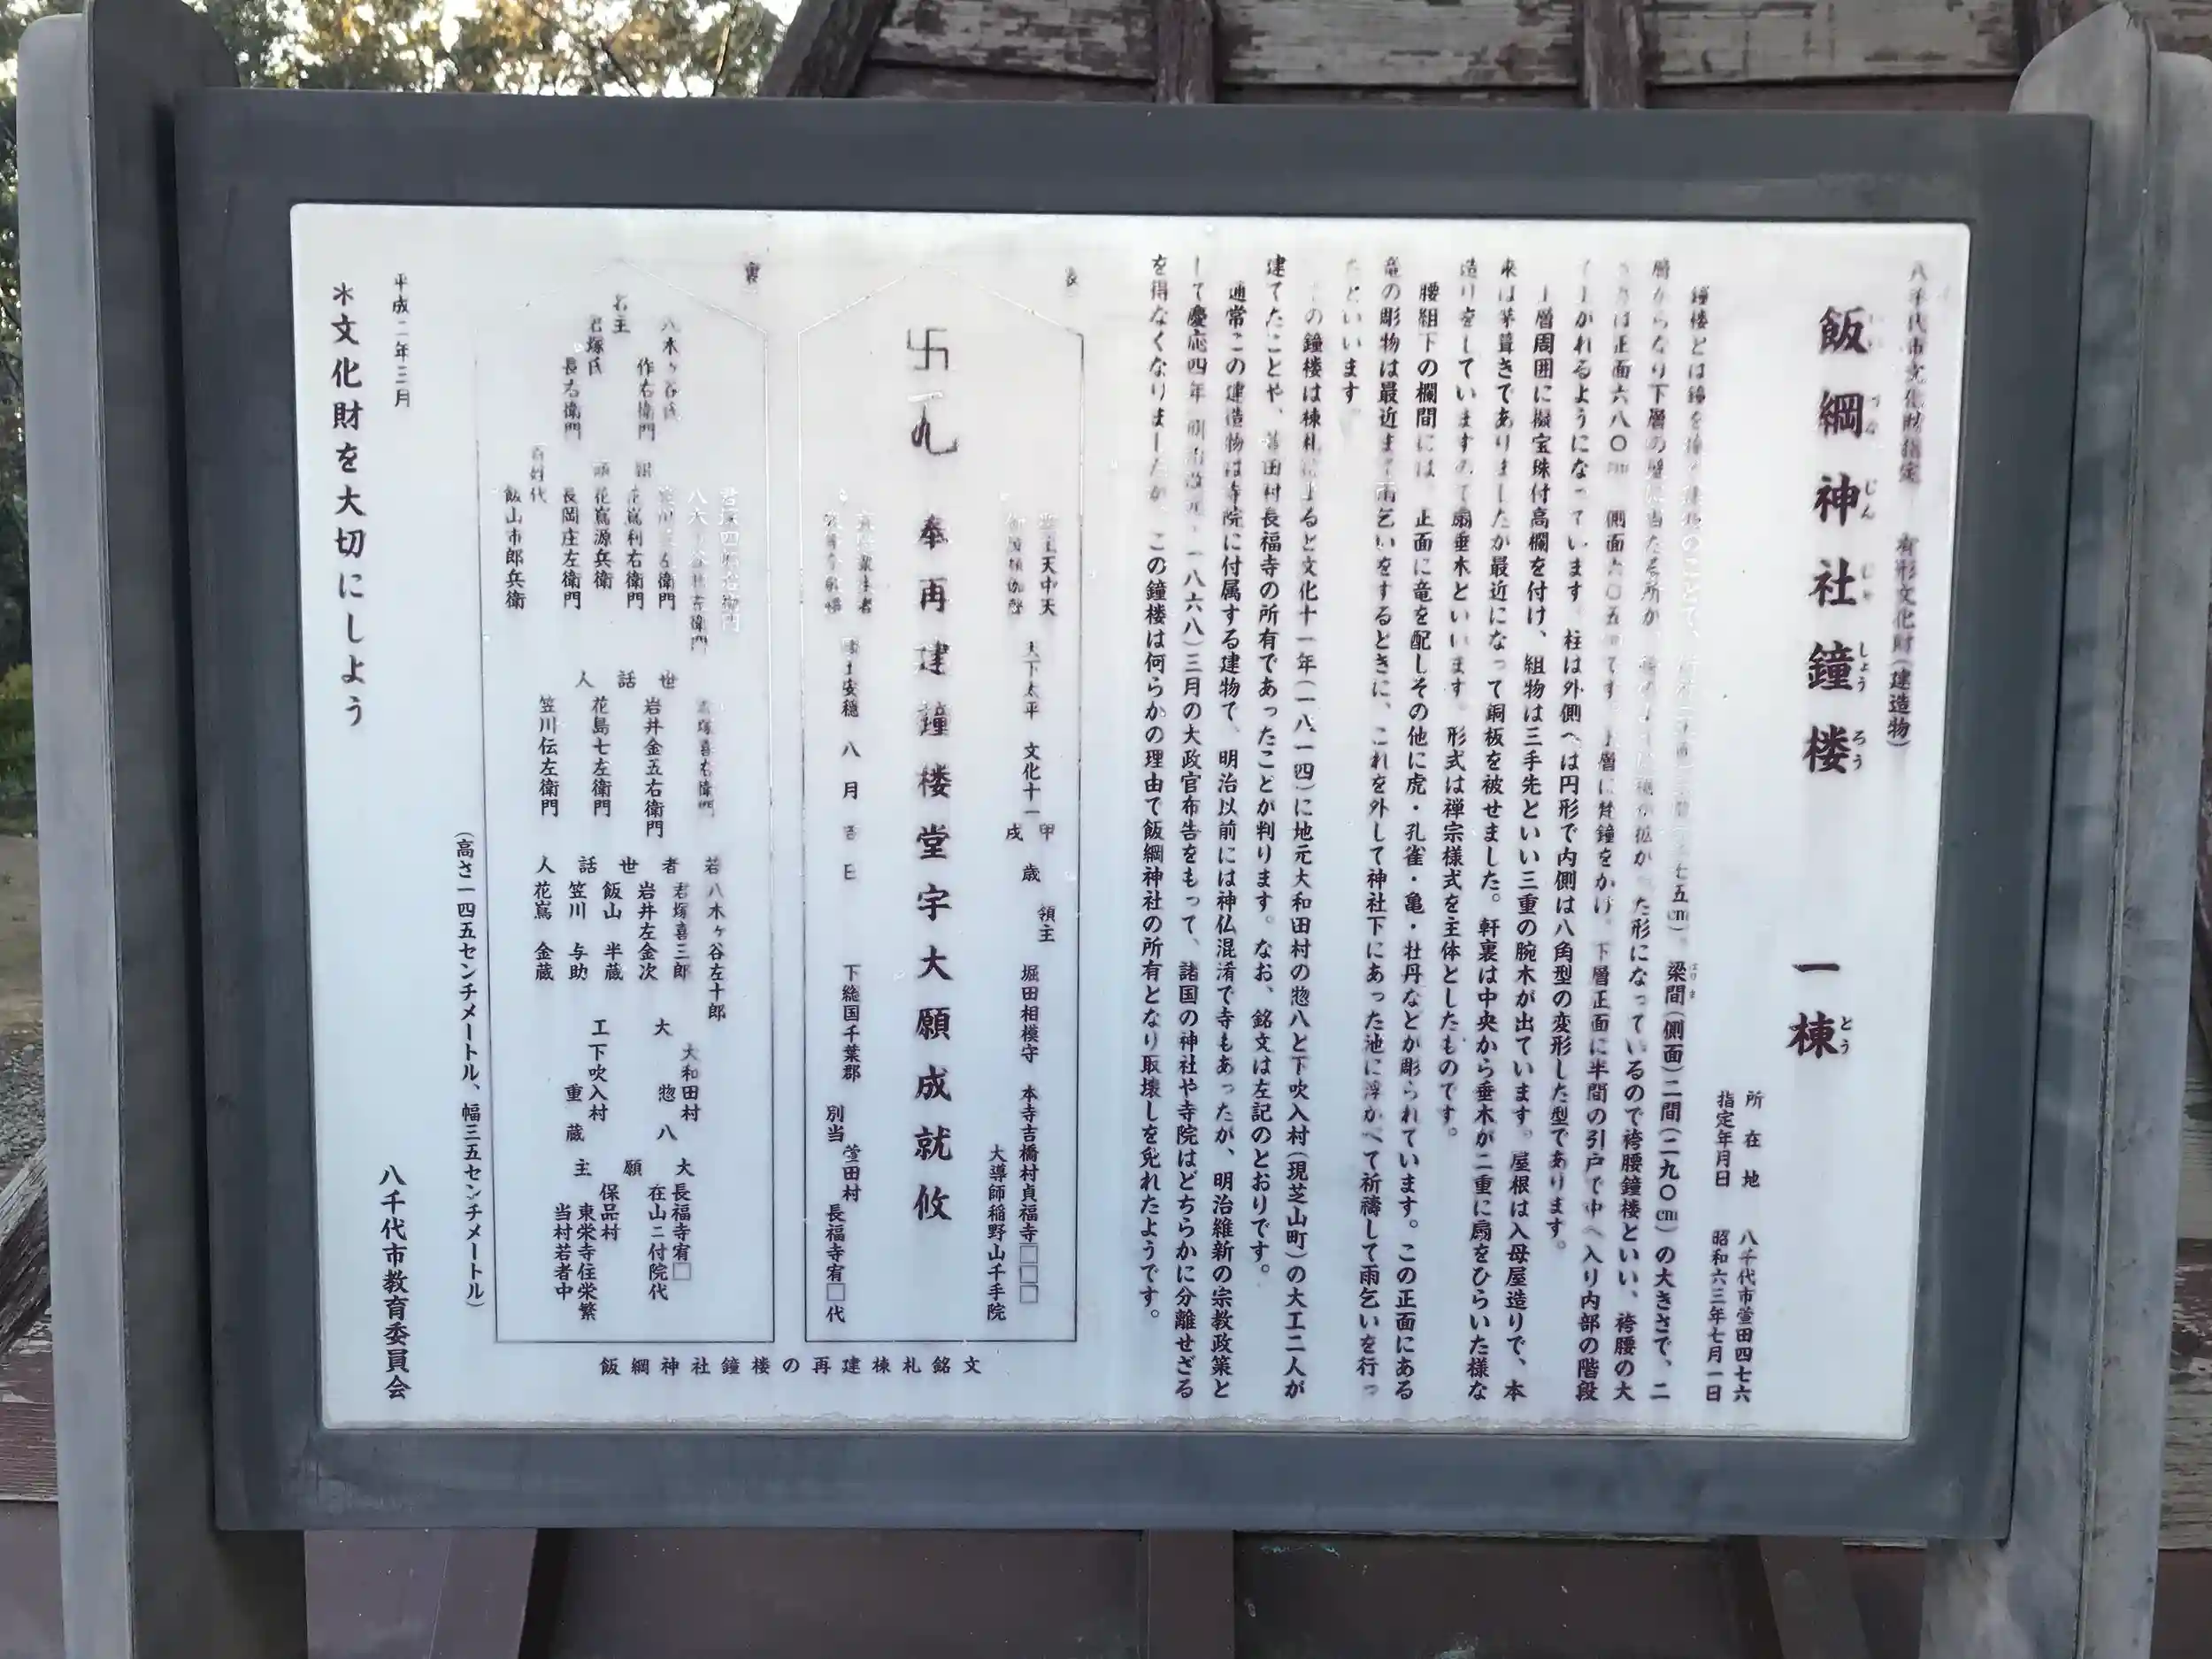 八千代市文化財指定　有形文化財(建造物)
飯綱神社鐘楼　一棟
いいづなじんじゃしょうろう　とう
所在地　八千代市萱田四七六
指定年月日　昭和六三年七月一日
鐘楼とは鐘を
七五㎝)、梁間(側面)二間(二九〇㎝)の大きさで、二
層からなり下層の壁に当たる所が、た形になっているので袴腰鐘楼といい、袴腰の大
は正面六八〇㎝　側面六〇五㎝です。上層に梵鐘をかけ。下層正面に半間の引戸で中へ入り内部の階段
で上がれるようになっています。柱は外側へは円形で内側は八角型の変形した型であります。
上層周囲に擬宝珠付高欄を付け、組物は三手先といい三重の腕木が出ています。屋根は入母屋造りで、本
来は茅葺きでありましたが最近になって銅板を被せました。軒裏は中央から垂木が二重に扇をひらいた様な
造りをしていますので扇垂木といいます。形式は禅宗様式を主体としたものです。
腰組下の欄間には　正面に竜を配しその他に虎・孔雀・亀・牡丹などが彫られています。この正面にある
竜の彫物は最近まで雨乞いをするときに、これを外して神社下にあった池に浮かべて祈禱して雨乞いを行っ
たといいます
この鐘楼は棟札によると文化十一年(一八一四)に地元大和田村の惣八と下吹入村(現芝山町)の大工二人が
建てたことや、萱田村長福寺の所有であったことが判ります。なお、銘文は左記のとおりです。
通常この建造物は寺院に付属する建物で、明治以前には神仏混淆で寺もあったが、明治維新の宗教政策と
して慶応四年(明治改元、一八六八)三月の大政官布告をもって、諸国の神社や寺院はどちらかに分離せざる
を得なくなりましたが、この鐘楼は何らかの理由で飯綱神社の所有となり取壊しを免れたようです。
表
天中天　天下太平　文化十一甲戌歳　領主　堀田相模守　本寺吉橋村貞福寺□□□
大導師稲野山千手院
卍　奉再建鐘楼堂宇大願成就攸
衆生者　国土安穏　八月吉日　下総国千葉郡　別当　萱田村　長福寺宥□代
裏
名主
八木ヶ谷氏
作右衛門
君塚氏
長右衛門
組頭
左衛門
花嶌利右衛門
花嶌源兵衛
長岡庄左衛門
百姓代
飯山市郎兵衛
世話人
君塚喜右衛門
岩井金五右衛門
花島七左衛門
笠川伝左衛門
若者世話人
八木ヶ谷左十郎
君塚喜三郎
岩井左金次
飯山　半蔵
笠川　与助
花嶌　金蔵
大工
大和田村
惣八
下吹入村
重蔵
大願主
長福寺宥□
在山二付院代
保品村
東栄寺住栄繁
当村若者中
飯綱神社鐘楼の再建棟札銘文
(高さ一四五センチメートル、幅三五センチメートル)
平成二年三月
八千代市教育委員会
＊文化財を大切にしよう